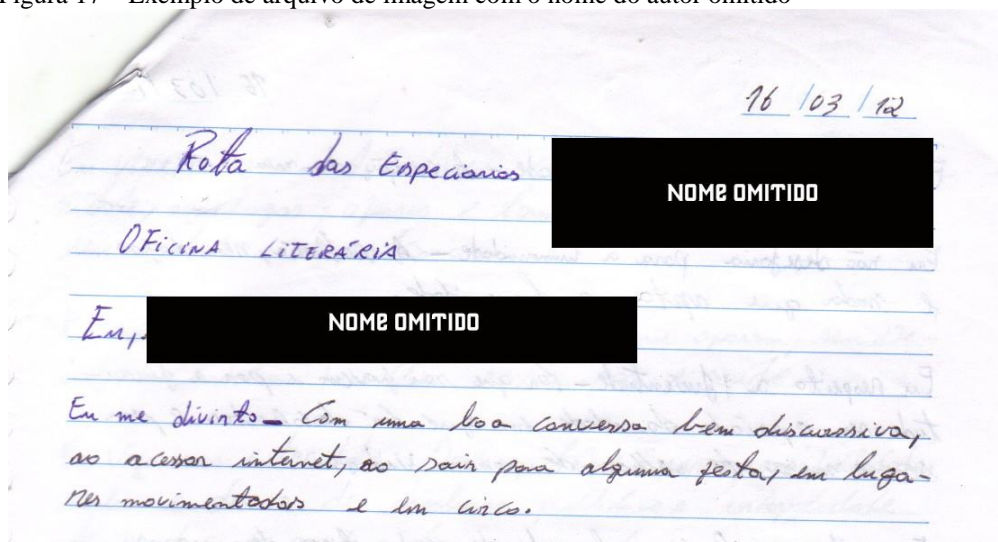 Figura 17 – Exemplo de arquivo de imagem com o nome do autor omitido
16/03/12
Rota das Especiarias
NOME OMITIDO
OFICINA LITERÁRIA
Eu,
NOME OMITIDO
Eu me divirto – Com uma boa conversa bem discursiva,
ao acessar internet, ao sair para alguma festa, em luga-
res movimentados e em circo.